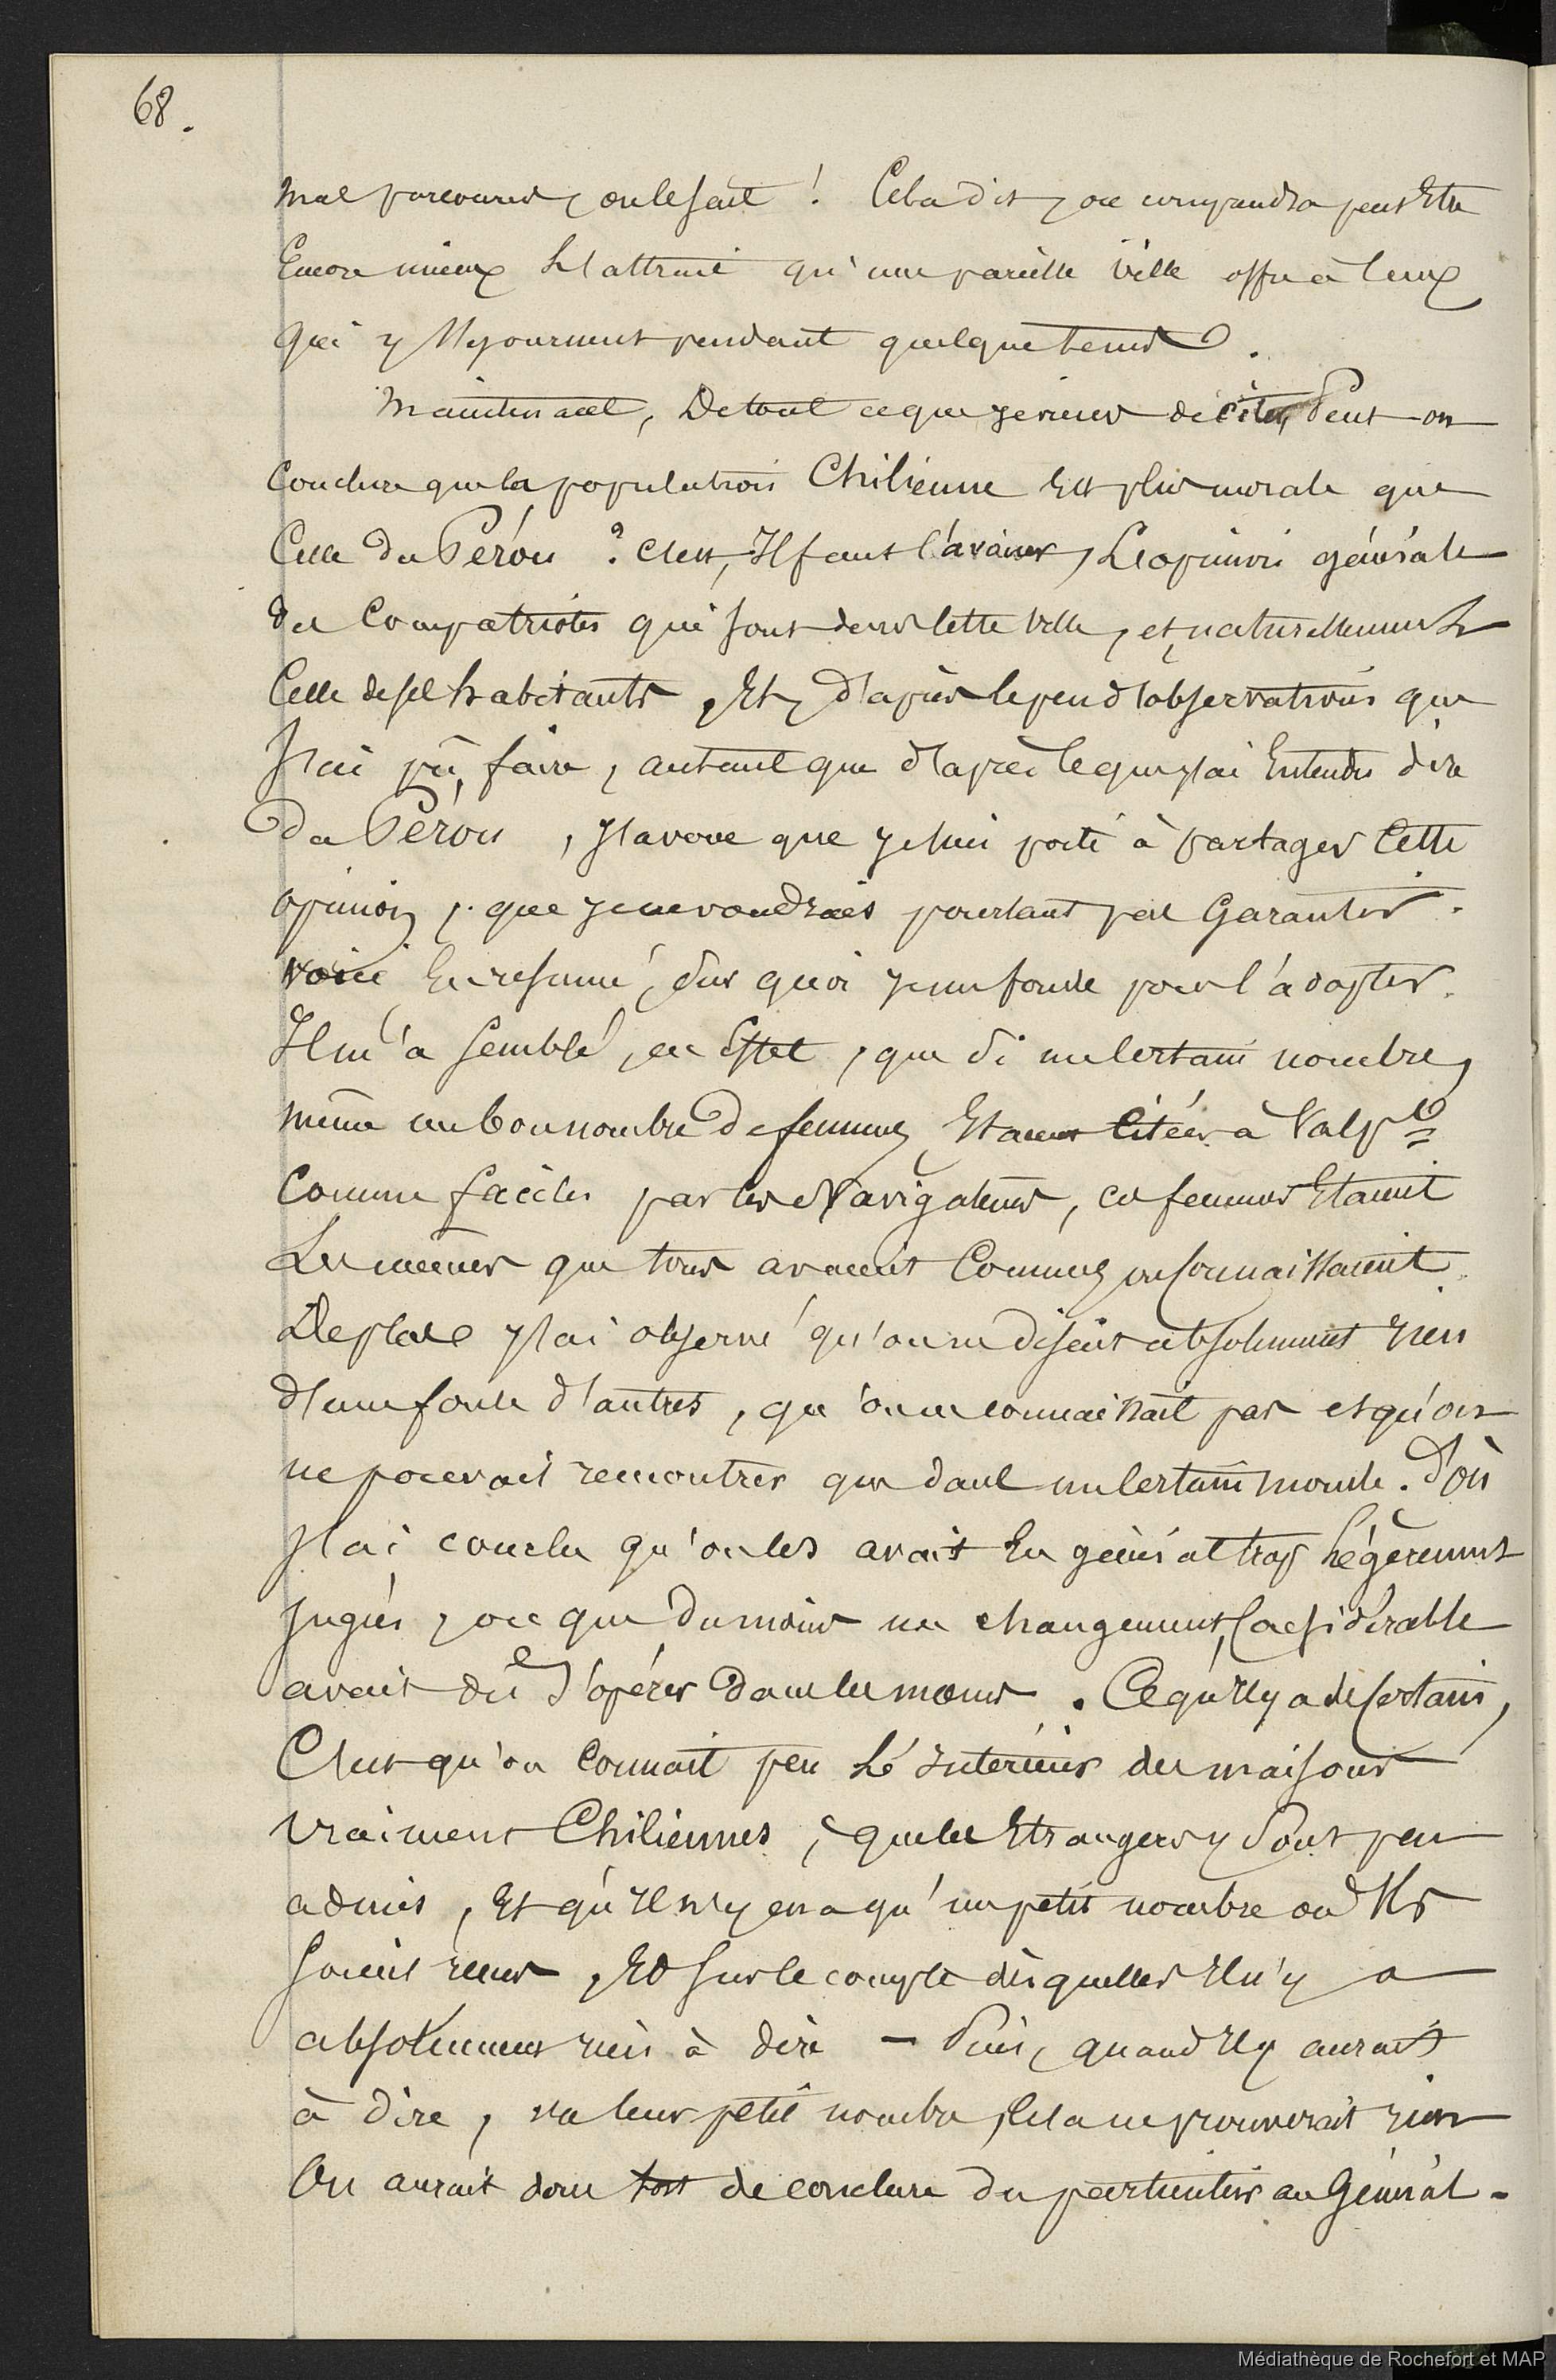 68.
mal parcourus, on le sait ! Cela dit, on comprendra peut Etre
Encore mieux L'attrait qu'une pareille ville offre à Ceux
qui y Séjournent pendant quelque tems.
Maintenant, De tout ce que je viens de citer, Peut-on
Conclure que la population Chilienne Est plus morale que
Celle du Pérou ? C'est, Il faut l'avouer, L'opinion générale
des Compatriotes qui sont dans Cette ville, et, naturellement
Celle de ses habitants. Et, D'après le peu d'observations que
J'ai pû faire, autant que d'après ce que j'ai Entendu dire
du Pérou, J'avoue que je suis porté à partager Cette
opinion, que je ne voudrais pourtant pas Garantir.
Voici En résumé, sur quoi je me fonde pour l'adopter.
Il m'a semblé, en Effet, que si un Certain nombre,
même un bon nombre de femmes, Etaient Citées à Valp.so
Comme faciles par les Navigateurs, ces femmes Etaient
Les mêmes que tous avaient Connues ou Connaissaient.
De plus j'ai observé qu'on ne disait absolument rien
d'une foule d'autres, qu'on ne connaissait pas et qu'on
ne pouvait rencontrer que dans un Certain monde. D'où
J'ai conclu qu'on les avait En général trop Légèrement
Jugées, ou que du moins un changement Considérable
avait dû s'opérer dans les mœurs. Ce qu'Il y a de Certain,
C'est qu'on Connait peu L'Intérieur des maisons
vraiment Chiliennes, que les Etrangers y Sont peu
admis, Et qu'Il n'y en a qu'un petit nombre où Ils
Soient reçus, Et Sur le compte desquelles Il n'y a
absolument rien à dire – Puis, quand Il y aurait
à dire, vu leur petit nombre, Cela ne prouverait rien
On aurait donc tort de conclure du particulier au Général.
Médiathèque de Rochefort et MAP